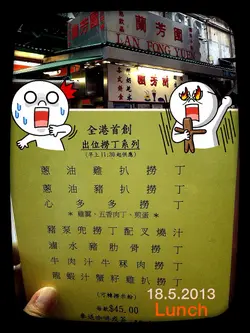 蘭芳園
蘭芳園
LAN FONG YUEN
全港首創
出位撈丁系列
(早上11:30起供應)
蔥油雞扒撈丁
蔥油豬扒撈丁
心多多撈丁
*雞翼、五香肉丁、煎蛋*
滷水豬肋骨撈丁
牛肉汁牛冧肉撈丁
龍蝦汁蟹籽雞扒撈丁
(可轉撈米粉)
每款$45.00
18.5.2013
Lunch